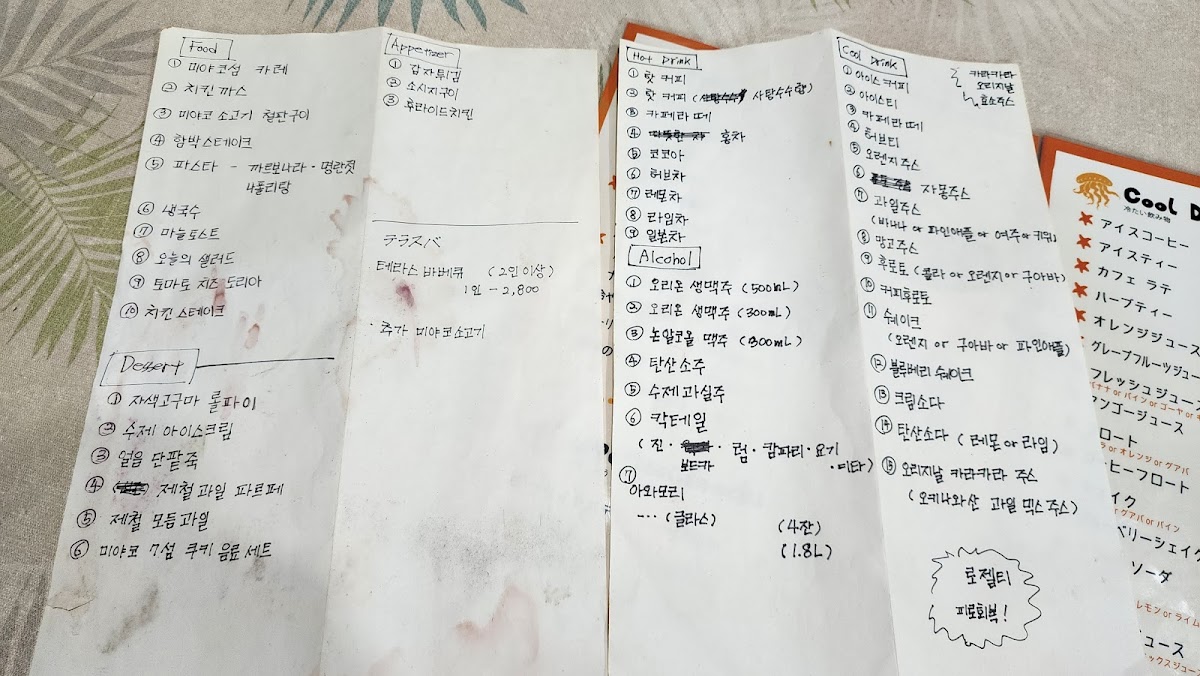 Food
① 미야코섬 카레
② 치킨 까스
③ 미야코 소고기 철판구이
④ 함박스테이크
⑤ 파스타 - 까르보나라 · 명란젓
나폴리탕
⑥ 냉국수
⑦ 마늘토스트
⑧ 오늘의 샐러드
⑨ 토마토 치즈 도리아
⑩ 치킨 스테이크
Dessert
① 자색고구마 롤파이
② 수제 아이스크림
③ 얼음 단팥죽
④ 제철과일 파르페
⑤ 제철 모듬과일
⑥ 미야코 7섬 쿠키 음료 세트
Appetizer
① 감자튀김
② 소시지구이
③ 후라이드치킨
テラスバ
테라스 바베큐 (2인 이상)
1인 - 2,800
· 추가 미야코소고기
Hot Drink
① 핫 커피
② 핫 커피 (사탕수수함)
③ 카페라떼
④ 홍차
⑤ 코코아
⑥ 허브차
⑦ 레몬차
⑧ 라임차
⑨ 일본차
Alcohol
① 오리온 생맥주 (500mL)
② 오리온 생맥주 (300mL)
③ 논알코올 맥주 (300mL)
④ 탄산소주
⑤ 수제과실주
⑥ 칵테일
(진 · 보드카 · 럼 · 캄파리 · 요기
· 띠타)
⑦
아와모리
--- (글라스) (4잔)
(1.8L)
Cool Drink
카라카라
오리지날
효소주스
① 아이스커피
② 아이스티
③ 카페라떼
④ 허브티
⑤ 오렌지 주스
⑥ 자몽주스
⑦ 과일주스
(바나나 or 파인애플 or 여주 or 키위)
⑧ 망고주스
⑨ 후로토 (콜라 or 오렌지 or 구아바)
⑩ 커피후로토
⑪ 쉐이크
(오렌지 or 구아바 or 파인애플)
⑫ 블루베리 쉐이크
⑬ 크림소다
⑭ 탄산소다 (레몬 or 라임)
⑮ 오리지날 카라카라 주스
(오키나와산 과일 믹스 주스)
로젤티
피로회복!
Cool D
冷たい飲み物
アイスコーヒー
アイスティー
カフェ ラテ
ハーブティー
オレンジジュース
グレープフルーツジュー
フレッシュジュー
バナナ or パイン or ゴーヤ or キ
マンゴージュース
ロート
ラ or オレンジ or グアバ
ヒーフロート
イク
or グアバ or パイン
ベリーシェイク
ソーダ
レモン or ライム
ュース
ックスジュース